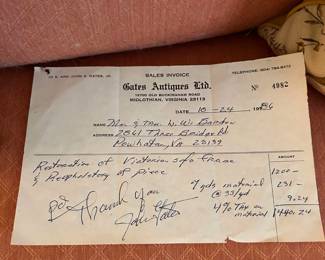 JO E. AND JOHN S. GATES, JR.
TELEPHONE: (804) 794-8472
SALES INVOICE
Gates Antiques Ltd.
16700 OLD BUCKINGHAM ROAD
MIDLOTHIAN, VIRGINIA 23113
Nº 4982
DATE 10-24 1986
NAME Mr & Mrs. W. W.
ADDRESS 2861 Three Bridge Rd
Powhatan, Va 23139
AMOUNT
Restoration of Victorian sofa frame 1200-
& Reupholstery of piece
7 yds material 231-
@ 33/yd
4% Tax on 9.24
material 1440.24
Pd Thank you
John Gates